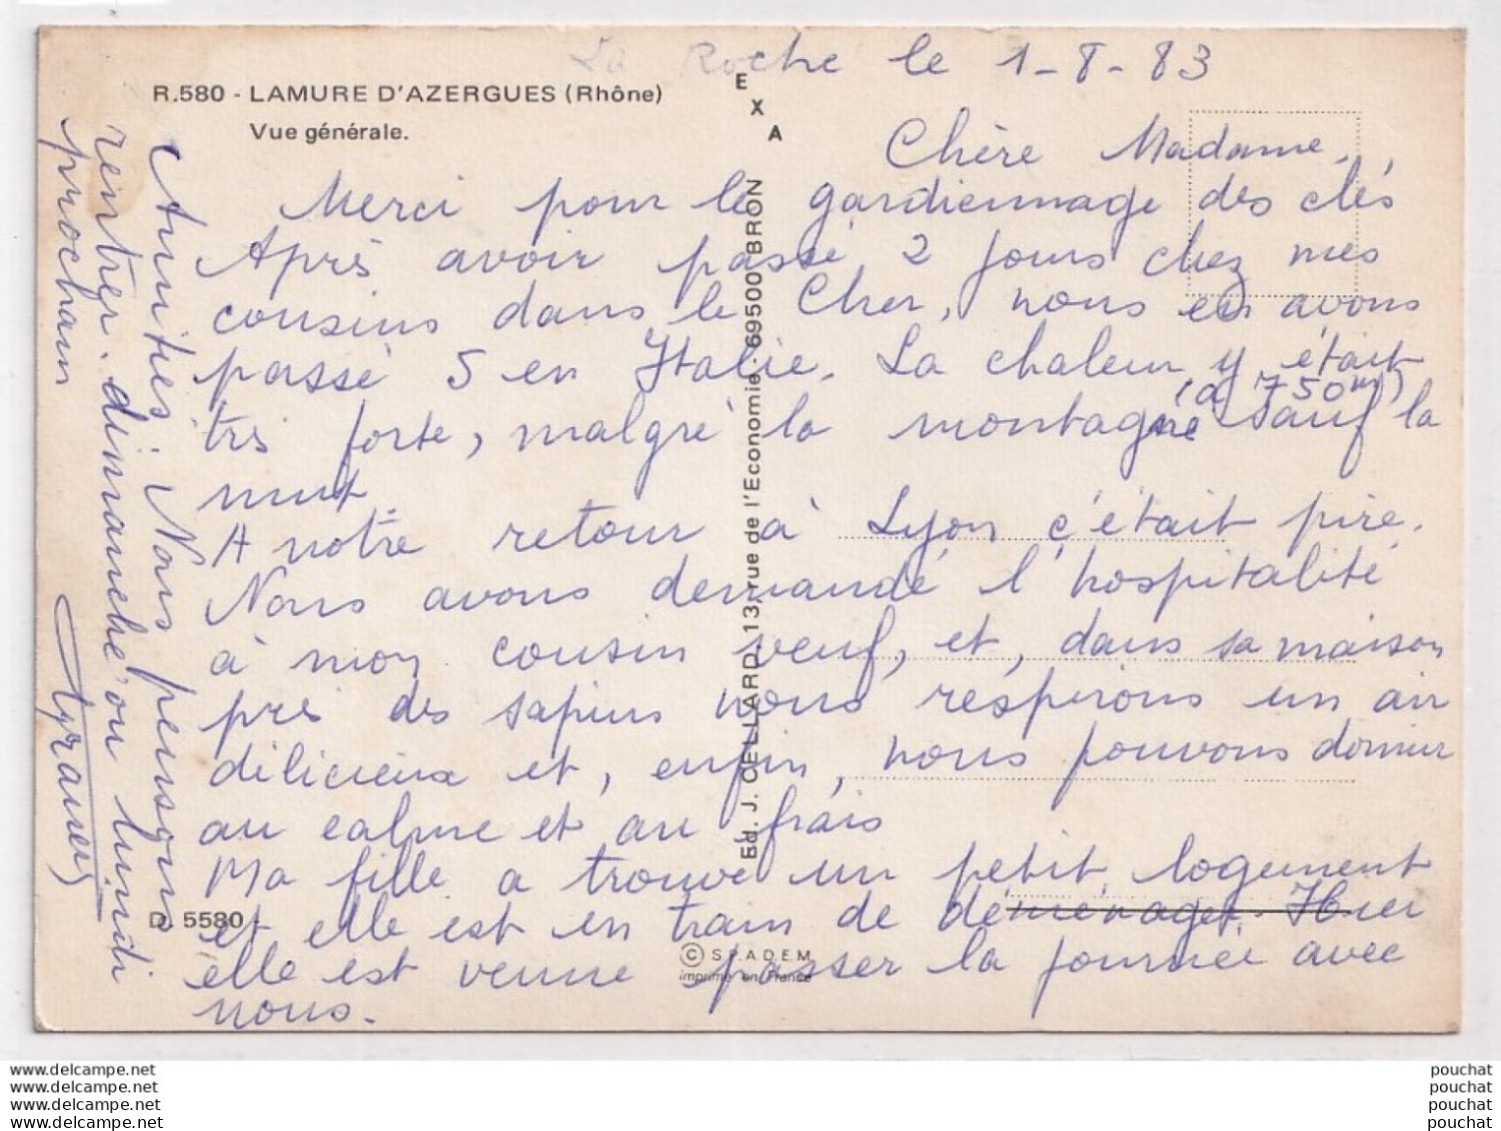 La Roche le 1-8-83
R.580 - LAMURE D'AZERGUES (Rhône)
Vue générale.
E
X
A
Chère Madame,
Merci pour le gardiennage des clés
Après avoir passé 2 jours chez mes
cousins dans le Cher, nous en avons
passé 5 en Italie. La chaleur y était
(à 750m)
très forte, malgré la montagne sauf la
nuit.
A notre retour à Lyon c'était pire.
Nous avons demandé l'hospitalité
à mon cousin veuf, et, dans sa maison
près des sapins nous respirons un air
délicieux et, enfin, nous pouvons dormir
au calme et au frais
Ma fille a trouvé un petit logement
et elle est en train de déménager. Hier
elle est venue passer la journée avec
nous.
Amitiés. Nous pensons
rentrer dimanche ou lundi
prochain
Ed. J. CELLARD, 13, rue de l'Economie - 69500 BRON
D. 5580
© S.P.A.D.E.M.
imprimé en France
www.delcampe.net
www.delcampe.net
www.delcampe.net
www.delcampe.net
pouchat
pouchat
pouchat
pouchat